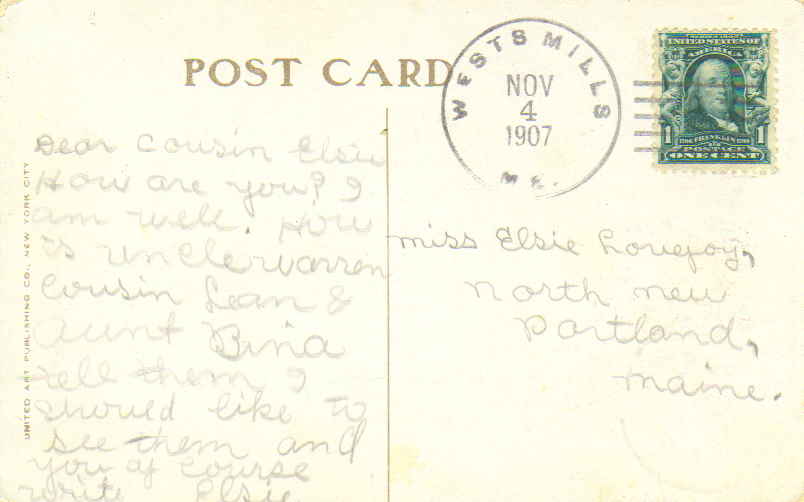 POST CARD
WESTS MILLS
NOV
4
1907
ME.
UNITED STATES OF
AMERICA
1 FRANKLIN 1
POSTAGE
ONE CENT
UNITED ART PUBLISHING CO., NEW YORK CITY
Dear Cousin Elsie
How are you? I
am well. How
is unclewarren
Cousin Lean &
Aunt Bina
tell them I
should like to
see them and
you of course
write Elsie
miss Elsie Lovejoy,
North new
Portland,
maine.